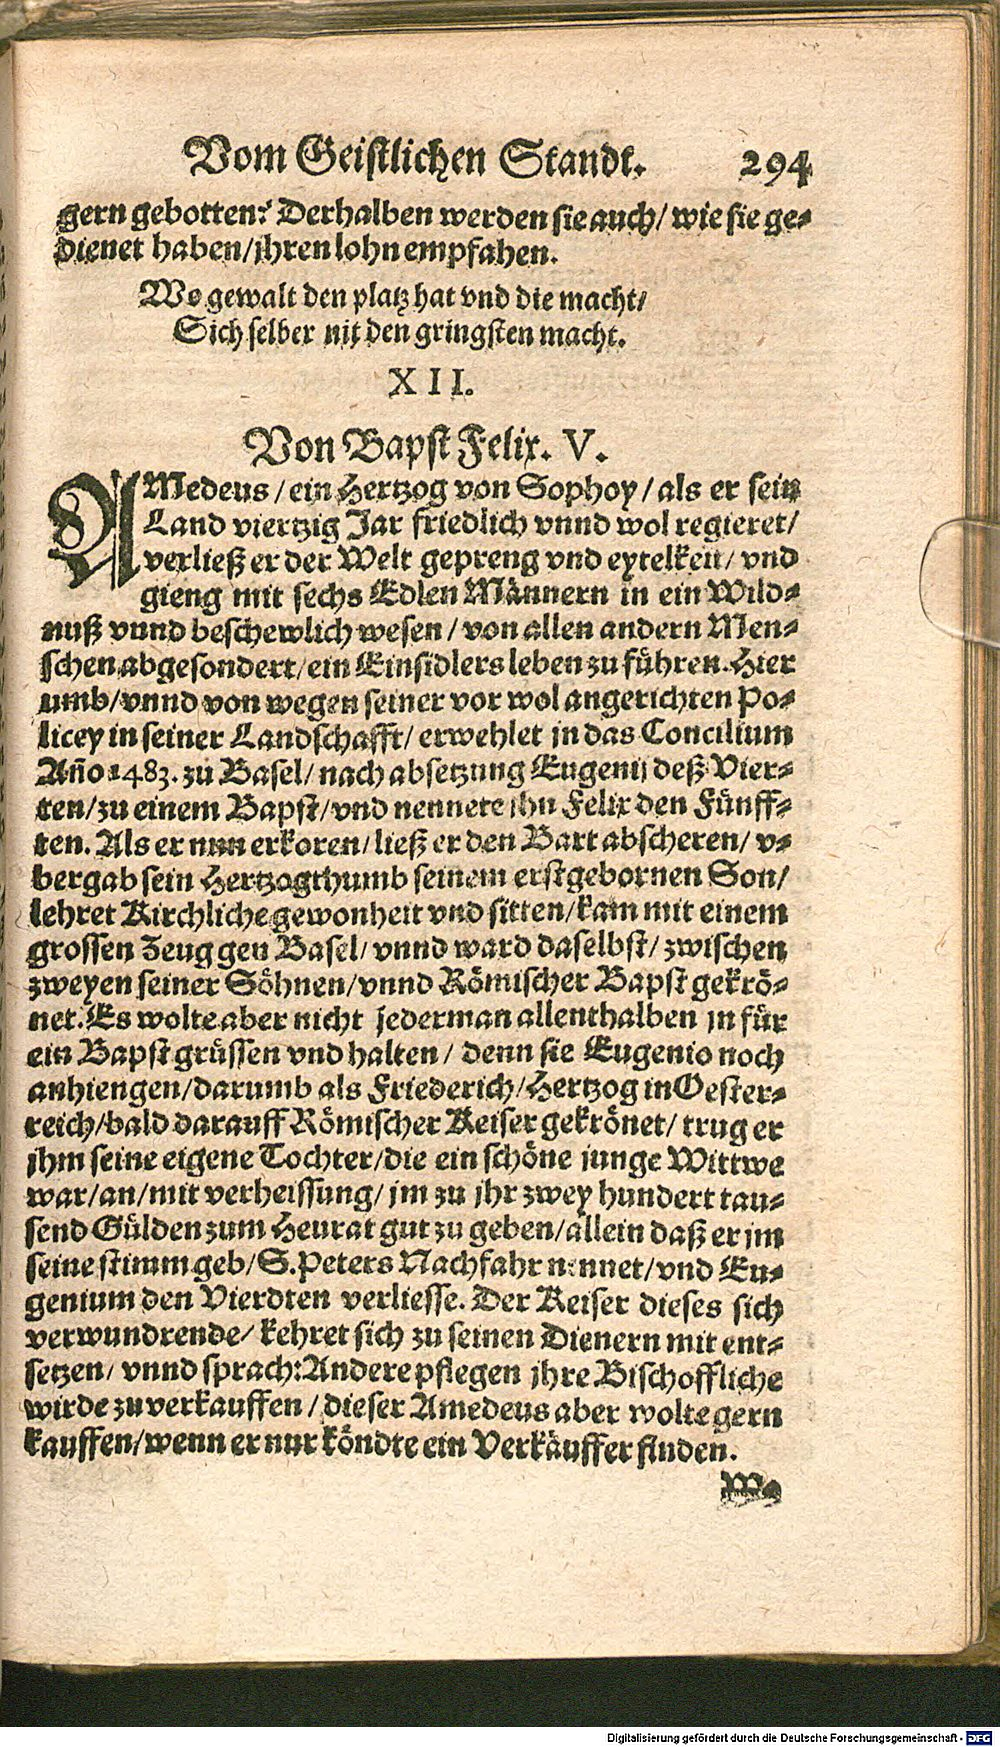 Vom Geistlichen Standt. 294
gern gebotten? Derhalben werden sie auch/ wie sie ge-
dienet haben/ jhren lohn empfahen.
Wo gewalt den platz hat vnd die macht/
Sich selber nit den gringsten macht.
XII.
Von Bapst Felix. V.
AMedeus/ ein Hertzog von Sophoy/ als er sein
Land viertzig Jar friedlich vnnd wol regieret/
verließ er der Welt gepreng vnd eytelkeit/ vnd
gieng mit sechs Edlen Männern in ein Wild-
nuß vnnd beschewlich wesen/ von allen andern Men-
schen abgesondert/ ein Einsidlers leben zu führen. Hier
umb/ vnnd von wegen seiner vor wol angerichten Po-
licey in seiner Landschafft/ erwehlet jn das Concilium
Año 1483. zu Basel/ nach absetzung Eugenij deß Vier-
ten/ zu einem Bapst/ vnd nennete jhn Felix den Fünff-
ten. Als er nun erkoren/ ließ er den Bart abscheren/ v-
bergab sein Hertzogthumb seinem erstgebornen Son/
lehret Kirchliche gewonheit vnd sitten/ kam mit einem
grossen Zeug gen Basel/ vnnd ward daselbst/ zwischen
zweyen seiner Söhnen/ vnnd Römischer Bapst gekrö-
net. Es wolte aber nicht jederman allenthalben jn für
ein Bapst grüssen vnd halten/ denn sie Eugenio noch
anhiengen/ darumb als Friederich/ Hertzog in Oester-
reich/ bald darauff Römischer Keiser gekrönet/ trug er
jhm seine eigene Tochter/ die ein schöne junge Wittwe
war/ an/ mit verheissung/ jm zu jhr zwey hundert tau-
send Gülden zum Heurat gut zu geben/ allein daß er jm
seine stimm geb/ S. Peters Nachfahr nennet/ vnd Eu-
genium den Vierdten verliesse. Der Keiser dieses sich
verwundrende/ kehret sich zu seinen Dienern mit ent-
setzen/ vnnd sprach: Andere pflegen jhre Bischoffliche
wirde zu verkauffen/ dieser Amedeus aber wolte gern
kauffen/ wenn er nur köndte ein Verkäuffer finden.
Wo
Digitalisierung gefördert durch die Deutsche Forschungsgemeinschaft - DFG